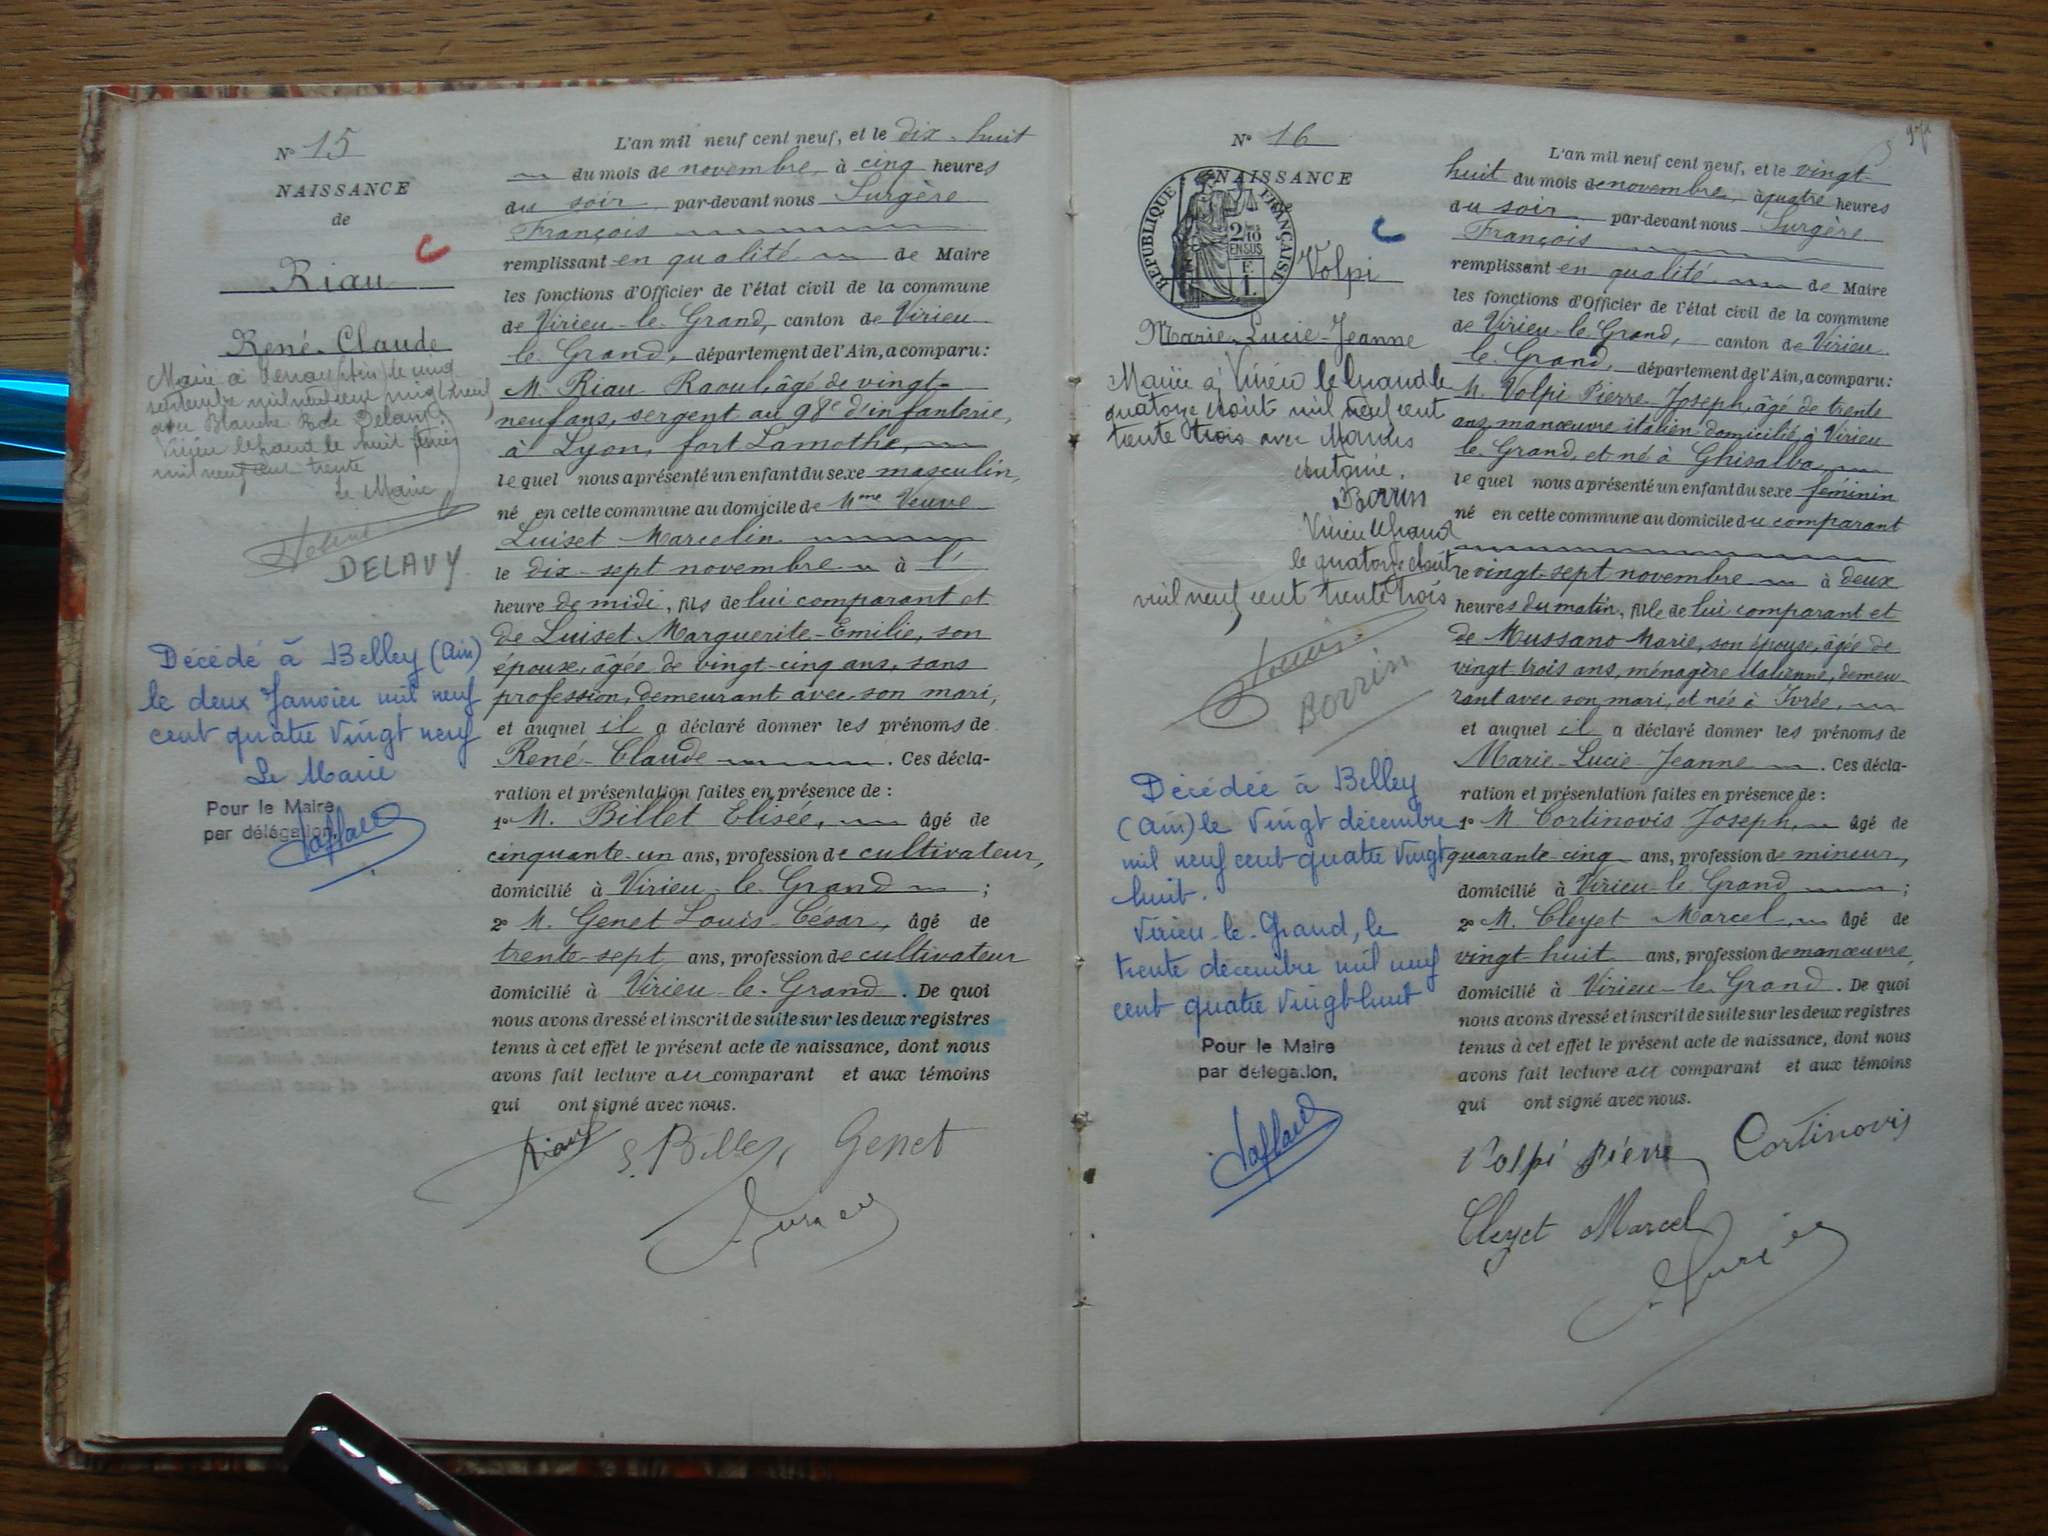 N° 15
NAISSANCE
de
Riau
René-Claude
septembre mil neuf cent vingt neuf
avec Blanche Rose Delavy
Virieu le Grand le huit
mil neuf cent trente
Le Maire
DELAVY
Décédé à Belley (Ain)
le deux Janvier mil neuf
cent quatre vingt neuf
Le Maire
Pour le Maire
par délégation,
L'an mil neuf cent neuf, et le dix-huit
du mois de novembre, à cinq heures
du soir par-devant nous Surgère
François
remplissant en qualité de Maire
les fonctions d'Officier de l'état civil de la commune
de Virieu-le-Grand, canton de Virieu
le Grand, département de l'Ain, a comparu:
M. Riau Raoul, âgé de vingt-
neuf ans, sergent au 98e d'infanterie,
à Lyon, fort Lamothe,
lequel nous a présenté un enfant du sexe masculin,
né en cette commune au domicile de Mme Veuve
Luiset Marcelin
le dix-sept novembre à l'
heure de midi, fils de lui comparant et
de Luiset Marguerite-Emilie, son
épouse, âgée de vingt-cinq ans, sans
profession, demeurant avec son mari,
et auquel il a déclaré donner les prénoms de
René-Claude. Ces décla-
ration et présentation faites en présence de :
1° M. Billet Elisée, âgé de
cinquante-un ans, profession de cultivateur,
domicilié à Virieu-le-Grand ;
2° M. Genet Louis-César, âgé de
trente-sept ans, profession de cultivateur
domicilié à Virieu-le-Grand. De quoi
nous avons dressé et inscrit de suite sur les deux registres
tenus à cet effet le présent acte de naissance, dont nous
avons fait lecture au comparant et aux témoins
qui ont signé avec nous.
Riau E. Billet Genet
N° 16
NAISSANCE
RÉPUBLIQUE FRANÇAISE
2/10 EN SUS
F. 1.
Volpi
Marie-Lucie-Jeanne
Mariée à Virieu le Grand le
quatorze août mil neuf cent
trente trois avec Marius
Antoine
Borrin
Virieu le Grand
le quatorze août
mil neuf cent trente trois
Borrin
Décédée à Belley
(Ain) le vingt décembre
mil neuf cent quatre vingt
huit.
Virieu-le-Grand, le
trente décembre mil neuf
cent quatre vingt-huit
Pour le Maire
par délégation,
L'an mil neuf cent neuf, et le vingt-
huit du mois de novembre, à quatre heures
du soir par-devant nous Surgère
François
remplissant en qualité de Maire
les fonctions d'Officier de l'état civil de la commune
de Virieu-le-Grand, canton de Virieu
le Grand, département de l'Ain, a comparu:
M. Volpi Pierre-Joseph, âgé de trente
ans, manœuvre italien domicilié à Virieu
le Grand, et né à Ghisalba,
lequel nous a présenté un enfant du sexe féminin
né en cette commune au domicile du comparant
le vingt-sept novembre à deux
heures du matin, fille de lui comparant et
de Mussano Marie, son épouse, âgée de
vingt trois ans, ménagère italienne, demeu-
rant avec son mari, et née à Ivrée,
et auquel il a déclaré donner les prénoms de
Marie-Lucie-Jeanne. Ces décla-
ration et présentation faites en présence de :
1° M. Cortinovis Joseph, âgé de
quarante-cinq ans, profession de mineur,
domicilié à Virieu-le-Grand ;
2° M. Cleyet Marcel, âgé de
vingt-huit ans, profession de manœuvre,
domicilié à Virieu-le-Grand. De quoi
nous avons dressé et inscrit de suite sur les deux registres
tenus à cet effet le présent acte de naissance, dont nous
avons fait lecture au comparant et aux témoins
qui ont signé avec nous.
Volpi Pierre Cortinovis
Cleyet Marcel